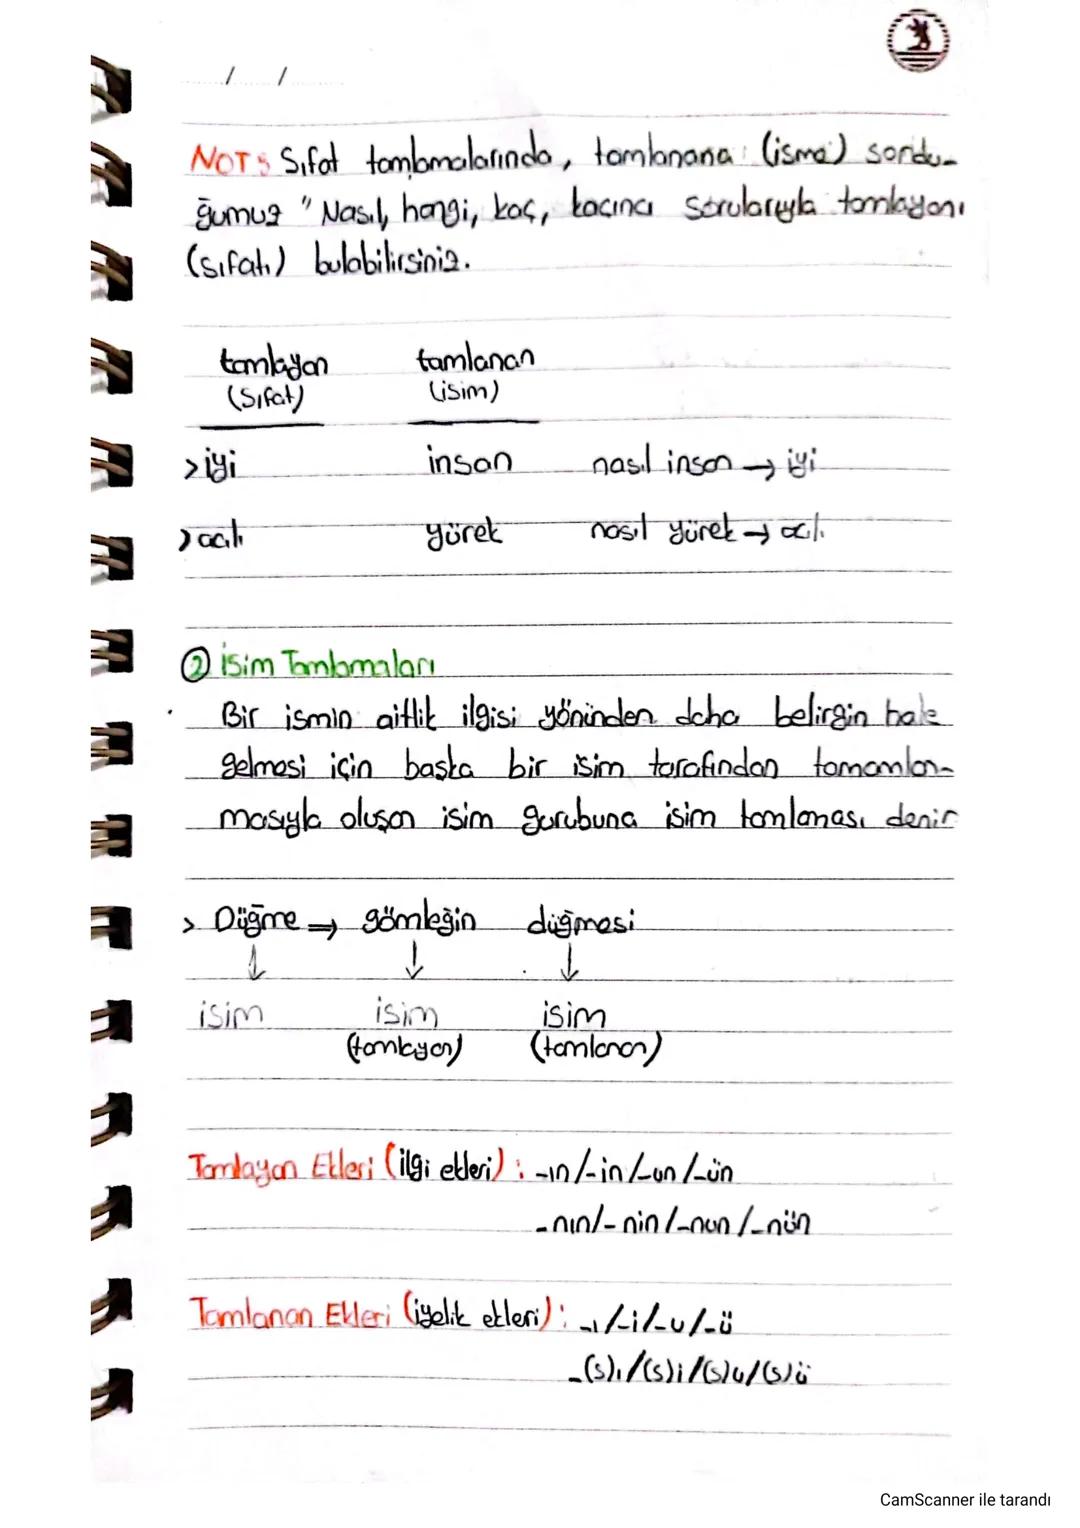 / /
NOT: Sıfat tamlamalarında, tamlanana (isme) sordu-
ğumuz "Nasıl, hangi, kaç, kaçıncı sorularıyla tamlayanı
(sıfatı) bulabilirsiniz.
tamlayan tamlanan
(Sıfat) (isim)
> iyi insan nasıl insan → iyi
> acılı yürek nasıl yürek → acılı
② İsim Tamlamaları
Bir ismin aitlik ilgisi yönünden daha belirgin hale
gelmesi için başka bir isim tarafından tamamlan-
masıyla oluşan isim gurubuna isim tamlaması denir
> Düğme → gömleğin düğmesi
↓ ↓ ↓
isim isim isim
(tamlayan) (tamlanan)
Tamlayan Ekleri (ilgi ekleri): -ın/-in/-un/-ün
-nın/-nin/-nun/-nün
Tamlanan Ekleri (iyelik ekleri): -ı/-i/-u/-ü
-(s)ı/(s)i/(s)u/(s)ü
CamScanner ile tarandı